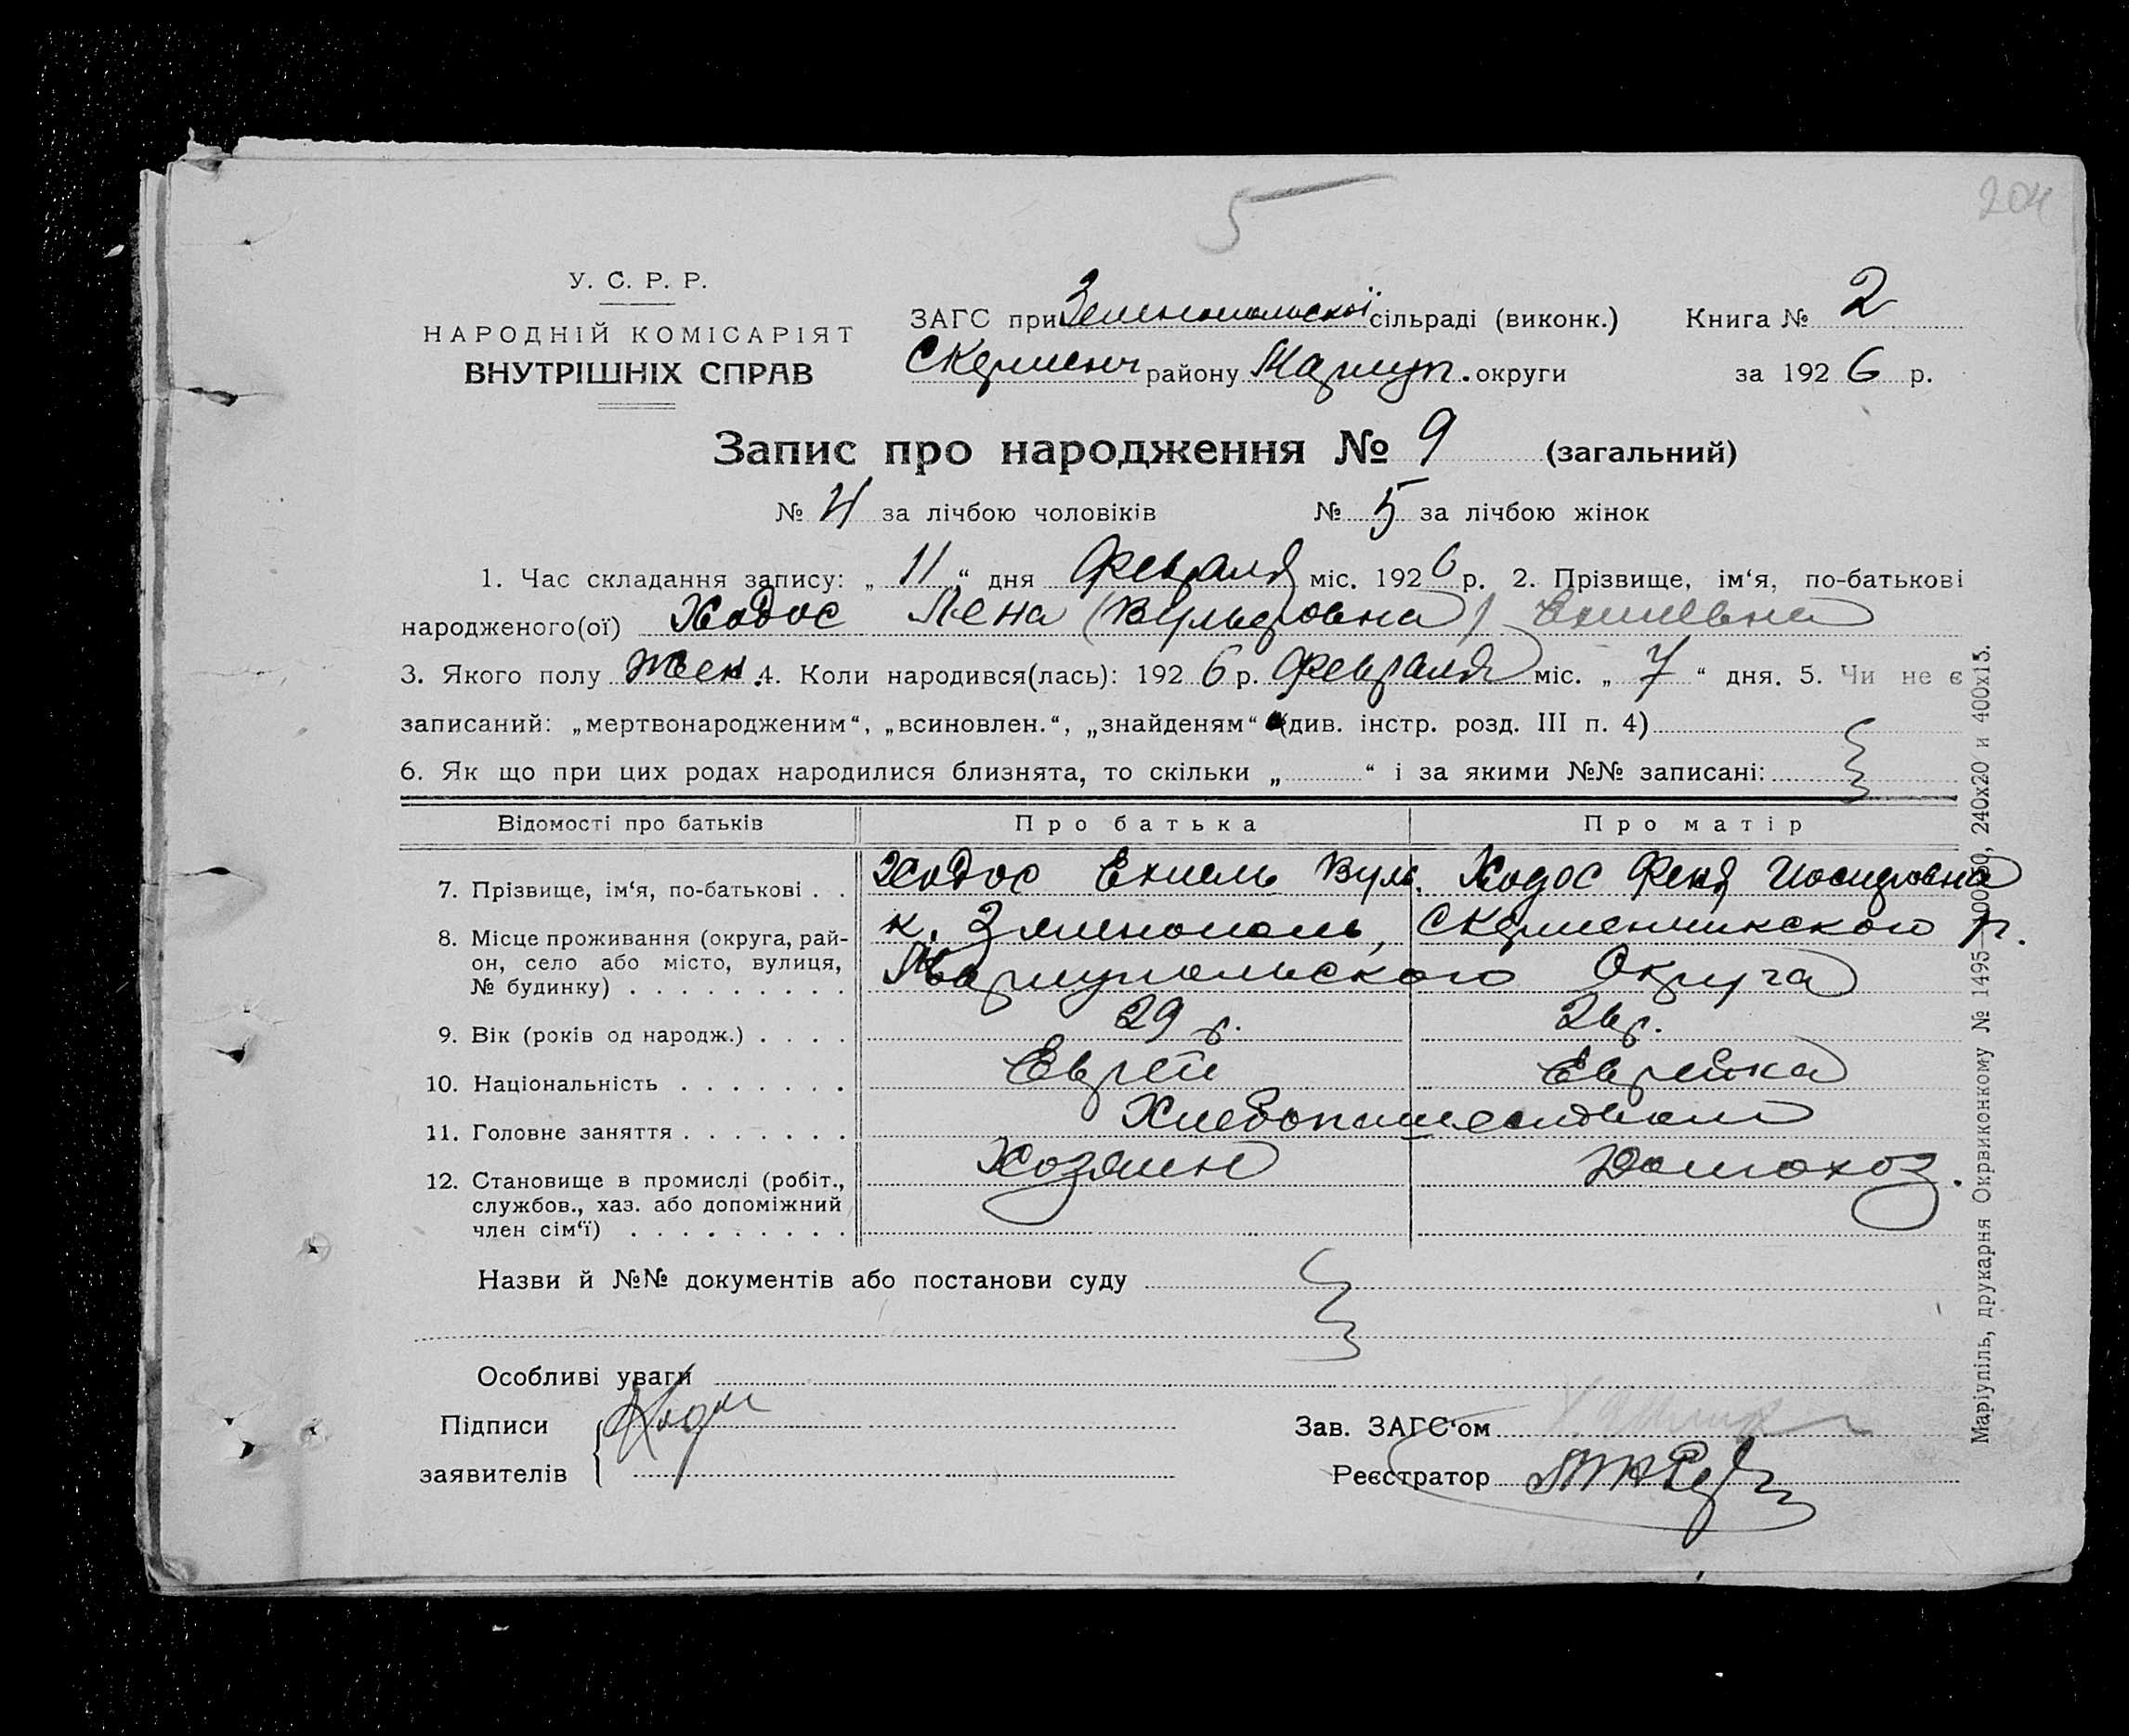 5
204
У. С. Р. Р.
НАРОДНІЙ КОМІСАРІЯТ
ВНУТРІШНІХ СПРАВ
ЗАГС при Зеленопольскої сільраді (виконк.) Книга № 2
району Мариуп. округи за 1926 р.
Запис про народження № 9 (загальний)
№ 4 за лічбою чоловіків № 5 за лічбою жінок
1. Час складання запису: „11“ дня Февраля міс. 1926 р. 2. Прізвище, ім‘я, по-батькові
народженого(ої) Ходос Лена (Вульфовна) Ехилевна
3. Якого полу Жен. 4. Коли народився(лась): 1926 р. Февраля міс. „7“ дня. 5. Чи не є
записаний: „мертвонародженим“, „всиновлен.“, „знайденям“ (див. інстр. розд. III п. 4)
6. Як що при цих родах народилися близнята, то скільки „ “ і за якими №№ записані:
Відомості про батьків Про батька Про матір
7. Прізвище, ім‘я, по-батькові . . Ходос Ехиель Вул. Ходос Феня Иосифовна
8. Місце проживання (округа, рай- к. Зеленополь, р.
он, село або місто, вулиця, Мариупольского Округа
№ будинку) . . . . . . . . .
9. Вік (років од народж.) . . . . 29 г. 26 г.
10. Національність . . . . . . . Еврей Еврейка
11. Головне заняття . . . . . . . Хлебопашество
12. Становище в промислі (робіт., Хозяин Домохоз.
службов., хаз. або допоміжний
член сім‘ї) . . . . . . . . .
Назви й №№ документів або постанови суду
Особливі уваги
Підписи Ходос Зав. ЗАГС‘ом
заявителів Реєстратор
Маріупіль, друкарня Окрвиконкому № 1495—10000, 240х20 и 400х15.